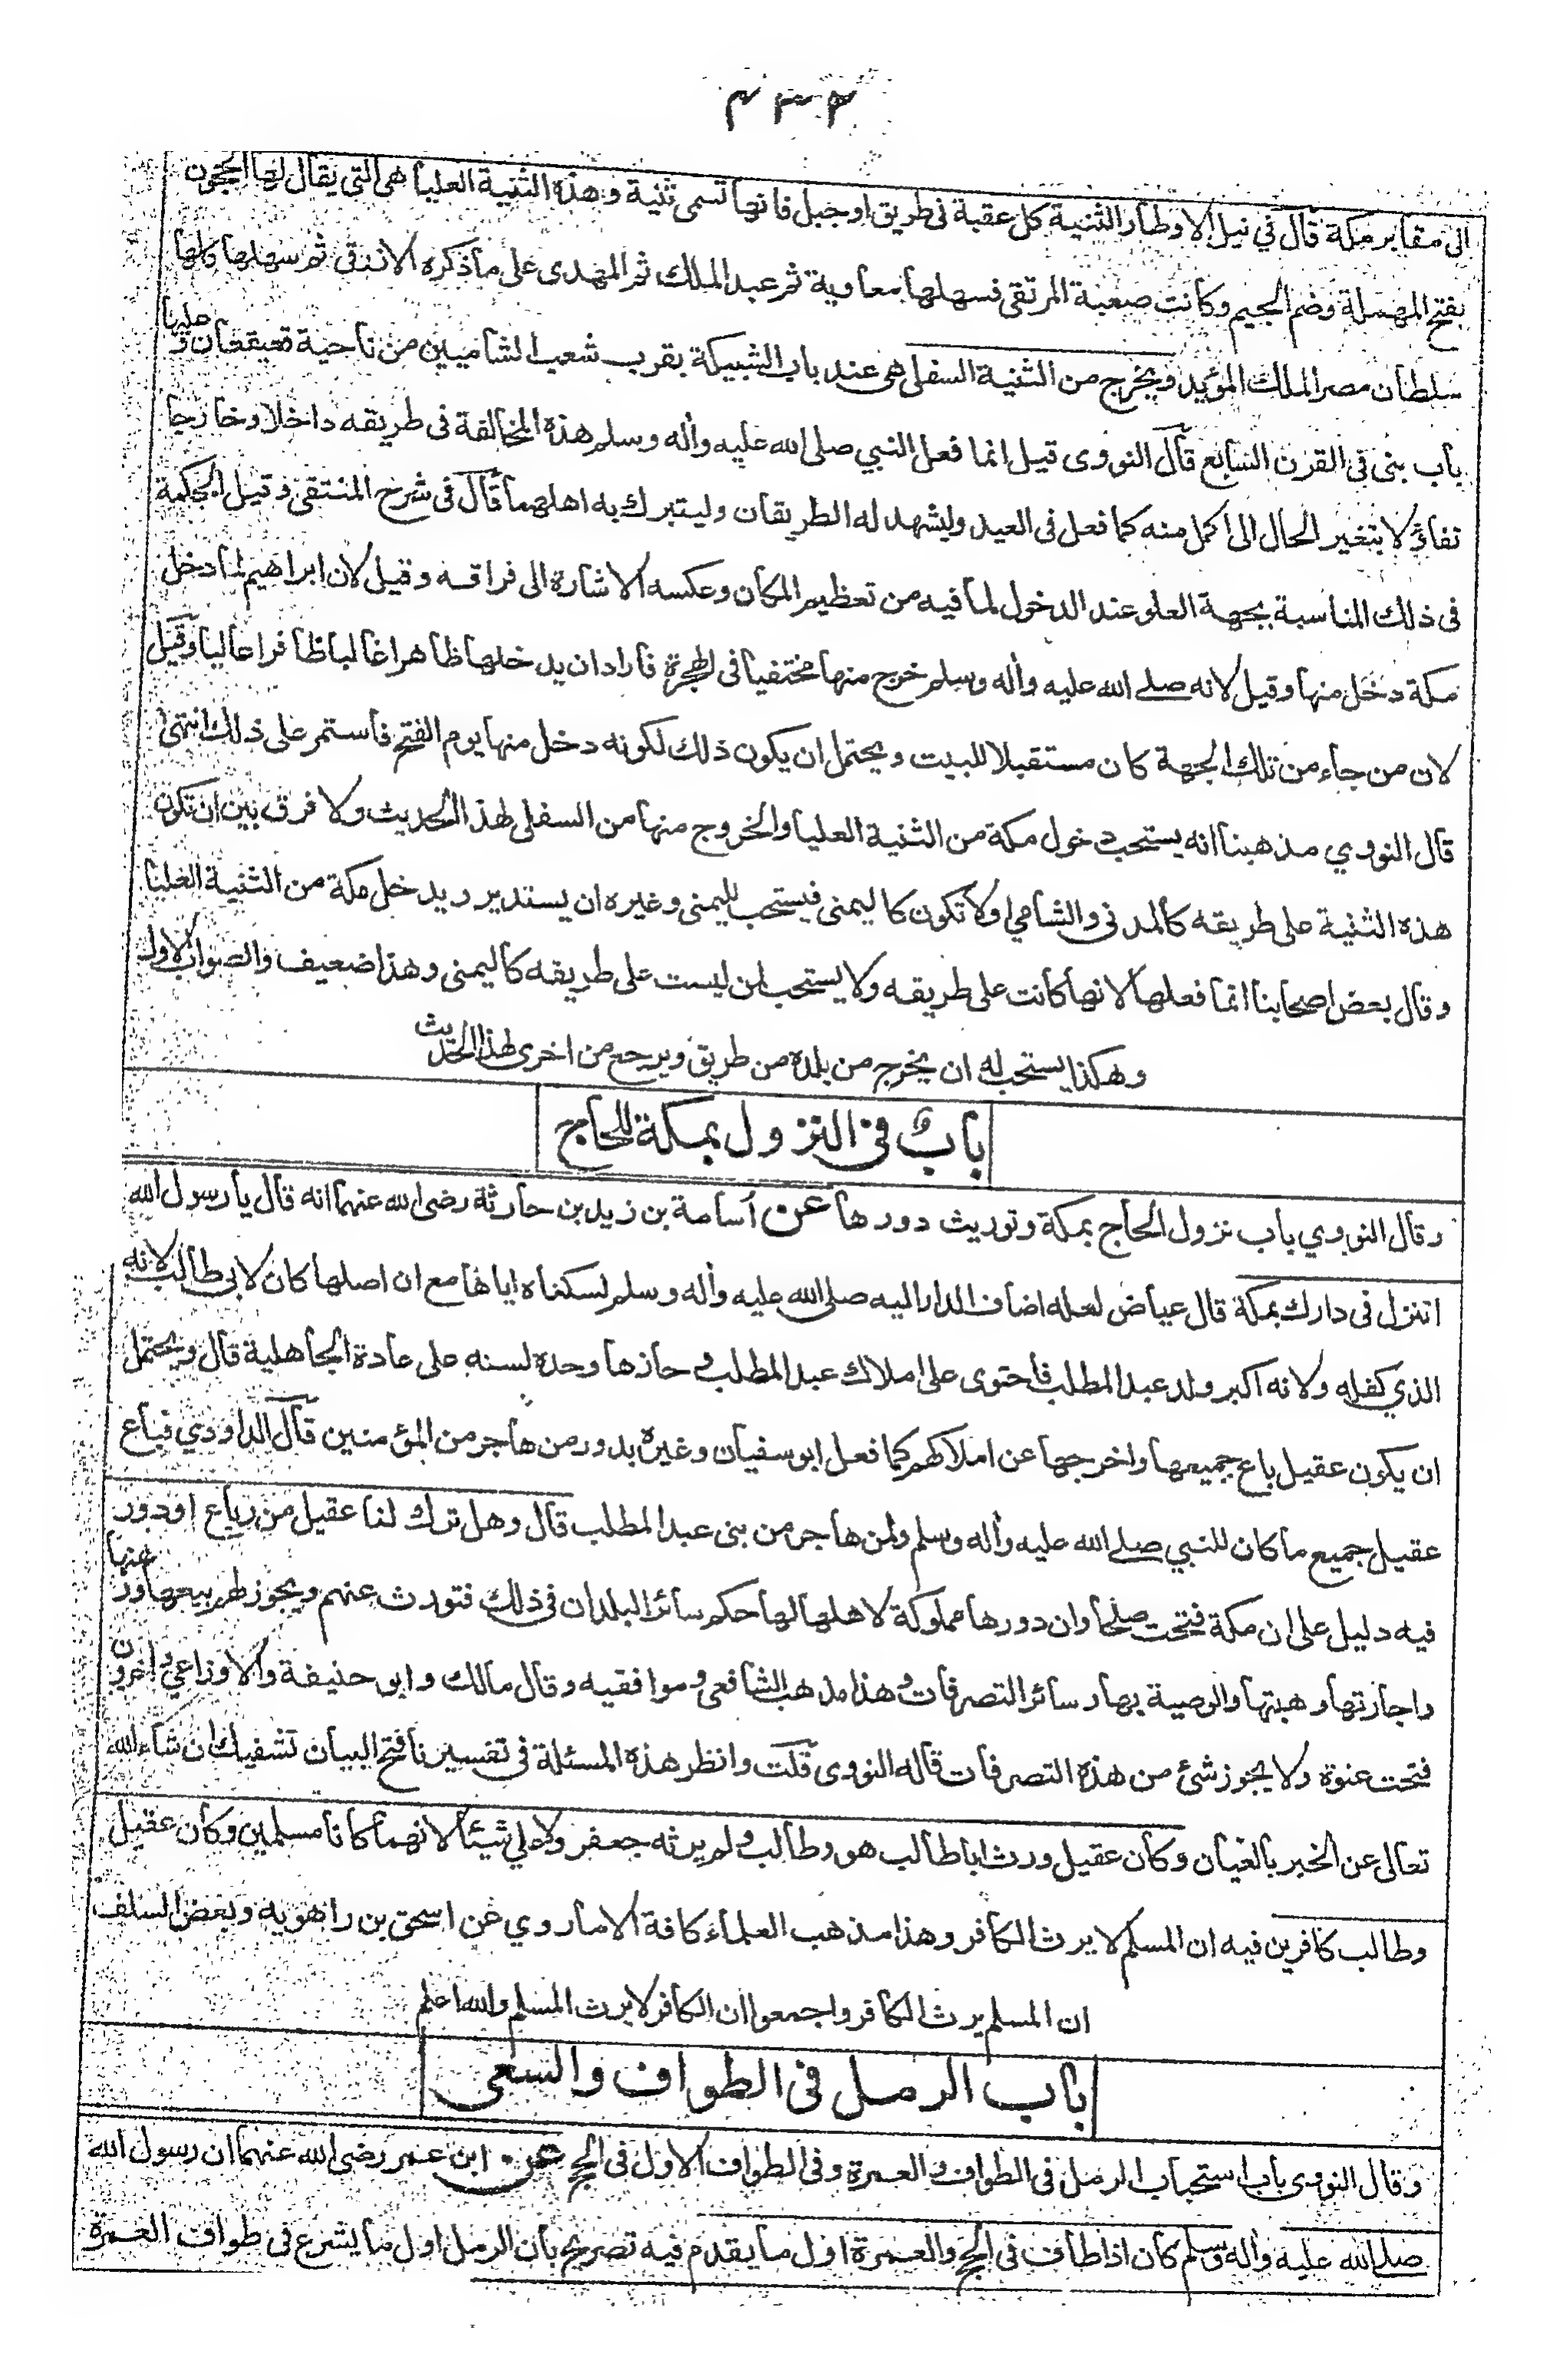 ٤٣٢
الى مقابر مكة قال في نيل الاوطار الثنية كل عقبة فى طريق او جبل فانها تسمى ثنية وهذه الثنية العليا هى التى يقال لها الحجون
بفتح المهملة وضم الجيم وكانت صعبة المرتقى فسهلها معاوية ثم عبد الملك ثم المهدى على ما ذكره الازرقى ثم سهلها كلها
سلطان مصر الملك المؤيد ويخرج من الثنية السفلى هى عند باب الشبيكة بقرب شعب الشاميين من ناحية قعيقعان وعليها
باب بنى فى القرن السابع قال النووى قيل انما فعل النبي صلى الله عليه وأله وسلم هذه المخالفة فى طريقه داخلا وخارجا
تفاؤلا بتغير الحال الى اكمل منه كما فعل فى العيد وليشهد له الطريقان وليتبرك به اهلهما قال فى شرح المنتقى وقيل الحكمة
فى ذلك المناسبة بجهة العلو عند الدخول لما فيه من تعظيم المكان وعكسه الاشارة الى فراقه وقيل لان ابراهيم لما دخل
مكة دخل منها وقيل لانه صلے الله عليه وأله وسلم خرج منها مختفيا فى الهجرة فاراد ان يدخلها ظاهرا غالبا ظافرا عاليا وقيل
لان من جاء من تلك الجهة كان مستقبلا للبيت ويحتمل ان يكون ذلك لكونه دخل منها يوم الفتح فاستمر على ذلك انتهى
قال النووي مذهبنا انه يستحب دخول مكة من الثنية العليا والخروج منها من السفلى لهذا الحديث ولا فرق بين ان تكون
هذه الثنية على طريقه كالمدنى والشامي اولا تكون كاليمنى فيستحب لليمنى وغيره ان يستدير ويدخل مكة من الثنية العليا
وقال بعض اصحابنا انما فعلها لانها كانت على طريقه ولا يستحب لمن ليست على طريقه كاليمنى وهذا ضعيف والصواب الاول
وهكذا يستحب له ان يخرج من بلده من طريق ويرجع من اخرى لهذا الحديث
باب فى النزول بمكة للحاج
وقال النووي باب نزول الحاج بمكة وتوريث دورها عن أسامة بن زيد بن حارثة رضى الله عنهما انه قال يا رسول الله
اتنزل فى دارك بمكة قال عياض لعله اضاف الدار اليه صلى الله عليه وأله وسلم لسكناه اياها مع ان اصلها كان لابى طالب لانه
الذي كفله ولانه اكبر ولد عبد المطلب فاحتوى على املاك عبد المطلب و حازها وحده لسنه على عادة الجاهلية قال ويحتمل
ان يكون عقيل باع جميعها واخرجها عن املاكهم كما فعل ابو سفيان وغيره بدور من هاجر من المؤمنين قال الداودي فباع
عقيل جميع ما كان للنبي صلے الله عليه وأله وسلم ولمن هاجر من بنى عبد المطلب قال وهل ترك لنا عقيل من رباع او دور
فيه دليل على ان مكة فتحت صلحا وان دورها مملوكة لاهلها لها حكم سائر البلدان فى ذلك فتورث عنهم ويجوز لهم بيعها ورهنها
واجارتها وهبتها والوصية بها وسائر التصرفات وهذا مذهب الشافعى وموافقيه وقال مالك وابو حنيفة والاوزاعي واخرون
فتحت عنوة ولا يجوز شئ من هذه التصرفات قاله النووى قلت وانظر هذه المسئلة فى تفسيرنا فتح البيان تشفيك ان شاء الله
تعالى عن الخبر بالعيان وكان عقيل ورث ابا طالب هو وطالب ولم يرثه جعفر ولا علي شيئا لانهما كانا مسلمين وكان عقيل
وطالب كافرين فيه ان المسلم لا يرث الكافر وهذا مذهب العلماء كافة الا ما روي عن اسحق بن راهويه وبعض السلف
ان المسلم يرث الكافر واجمعوا ان الكافر لا يرث المسلم والله اعلم
باب الرمل فى الطواف والسعى
وقال النووى باب استحباب الرمل فى الطواف و العمرة وفى الطواف الاول فى الحج عن ابن عمر رضى الله عنهما ان رسول الله
صلے الله عليه وأله وسلم كان اذا طاف فى الحج والعمرة اول ما يقدم فيه تصريح بان الرمل اول ما يشرع فى طواف العمرة